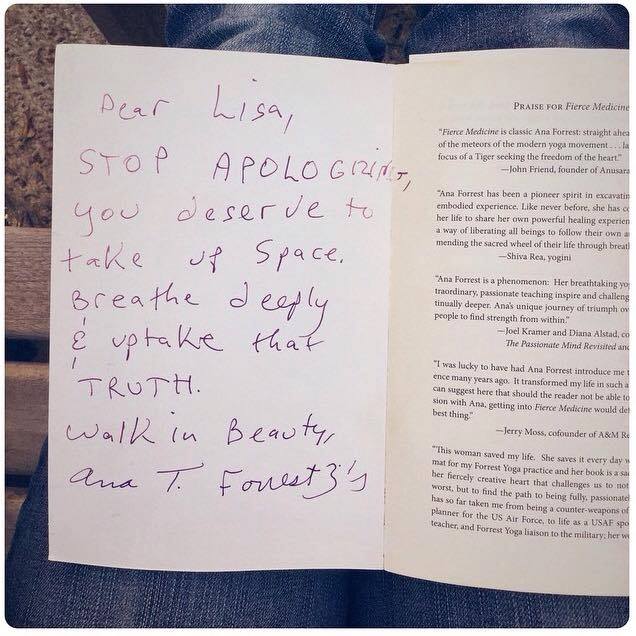 Dear Lisa,
STOP APOLOGIZING,
you deserve to
take up Space.
Breathe deeply
& uptake that
TRUTH.
Walk in Beauty,
Ana T. Forrest
PRAISE FOR Fierce Medicine
"Fierce Medicine is classic Ana Forrest: straight ahea
of the meteors of the modern yoga movement . . . la
focus of a Tiger seeking the freedom of the heart."
—John Friend, founder of Anusara
"Ana Forrest has been a pioneer spirit in excavatin
embodied experience. Like never before, she has co
her life to share her own powerful healing experien
a way of liberating all beings to follow their own a
mending the sacred wheel of their life through breat
—Shiva Rea, yogini
"Ana Forrest is a phenomenon: Her breathtaking yo
traordinary, passionate teaching inspire and challeng
tinually deeper. Ana's unique journey of triumph ov
people to find strength from within."
—Joel Kramer and Diana Alstad, co
The Passionate Mind Revisited and
"I was lucky to have had Ana Forrest introduce me t
ence many years ago. It transformed my life in such a
can suggest here that should the reader not be able to
sion with Ana, getting into Fierce Medicine would def
best thing."
—Jerry Moss, cofounder of A&M Re
"This woman saved my life. She saves it every day w
mat for my Forrest Yoga practice and her book is a sa
her fiercely creative heart that challenges us to not
worst, but to find the path to being fully, passionatel
has so far taken me from being a counter-weapons of
planner for the US Air Force, to life as a USAF spo
teacher, and Forrest Yoga liaison to the military; her wo